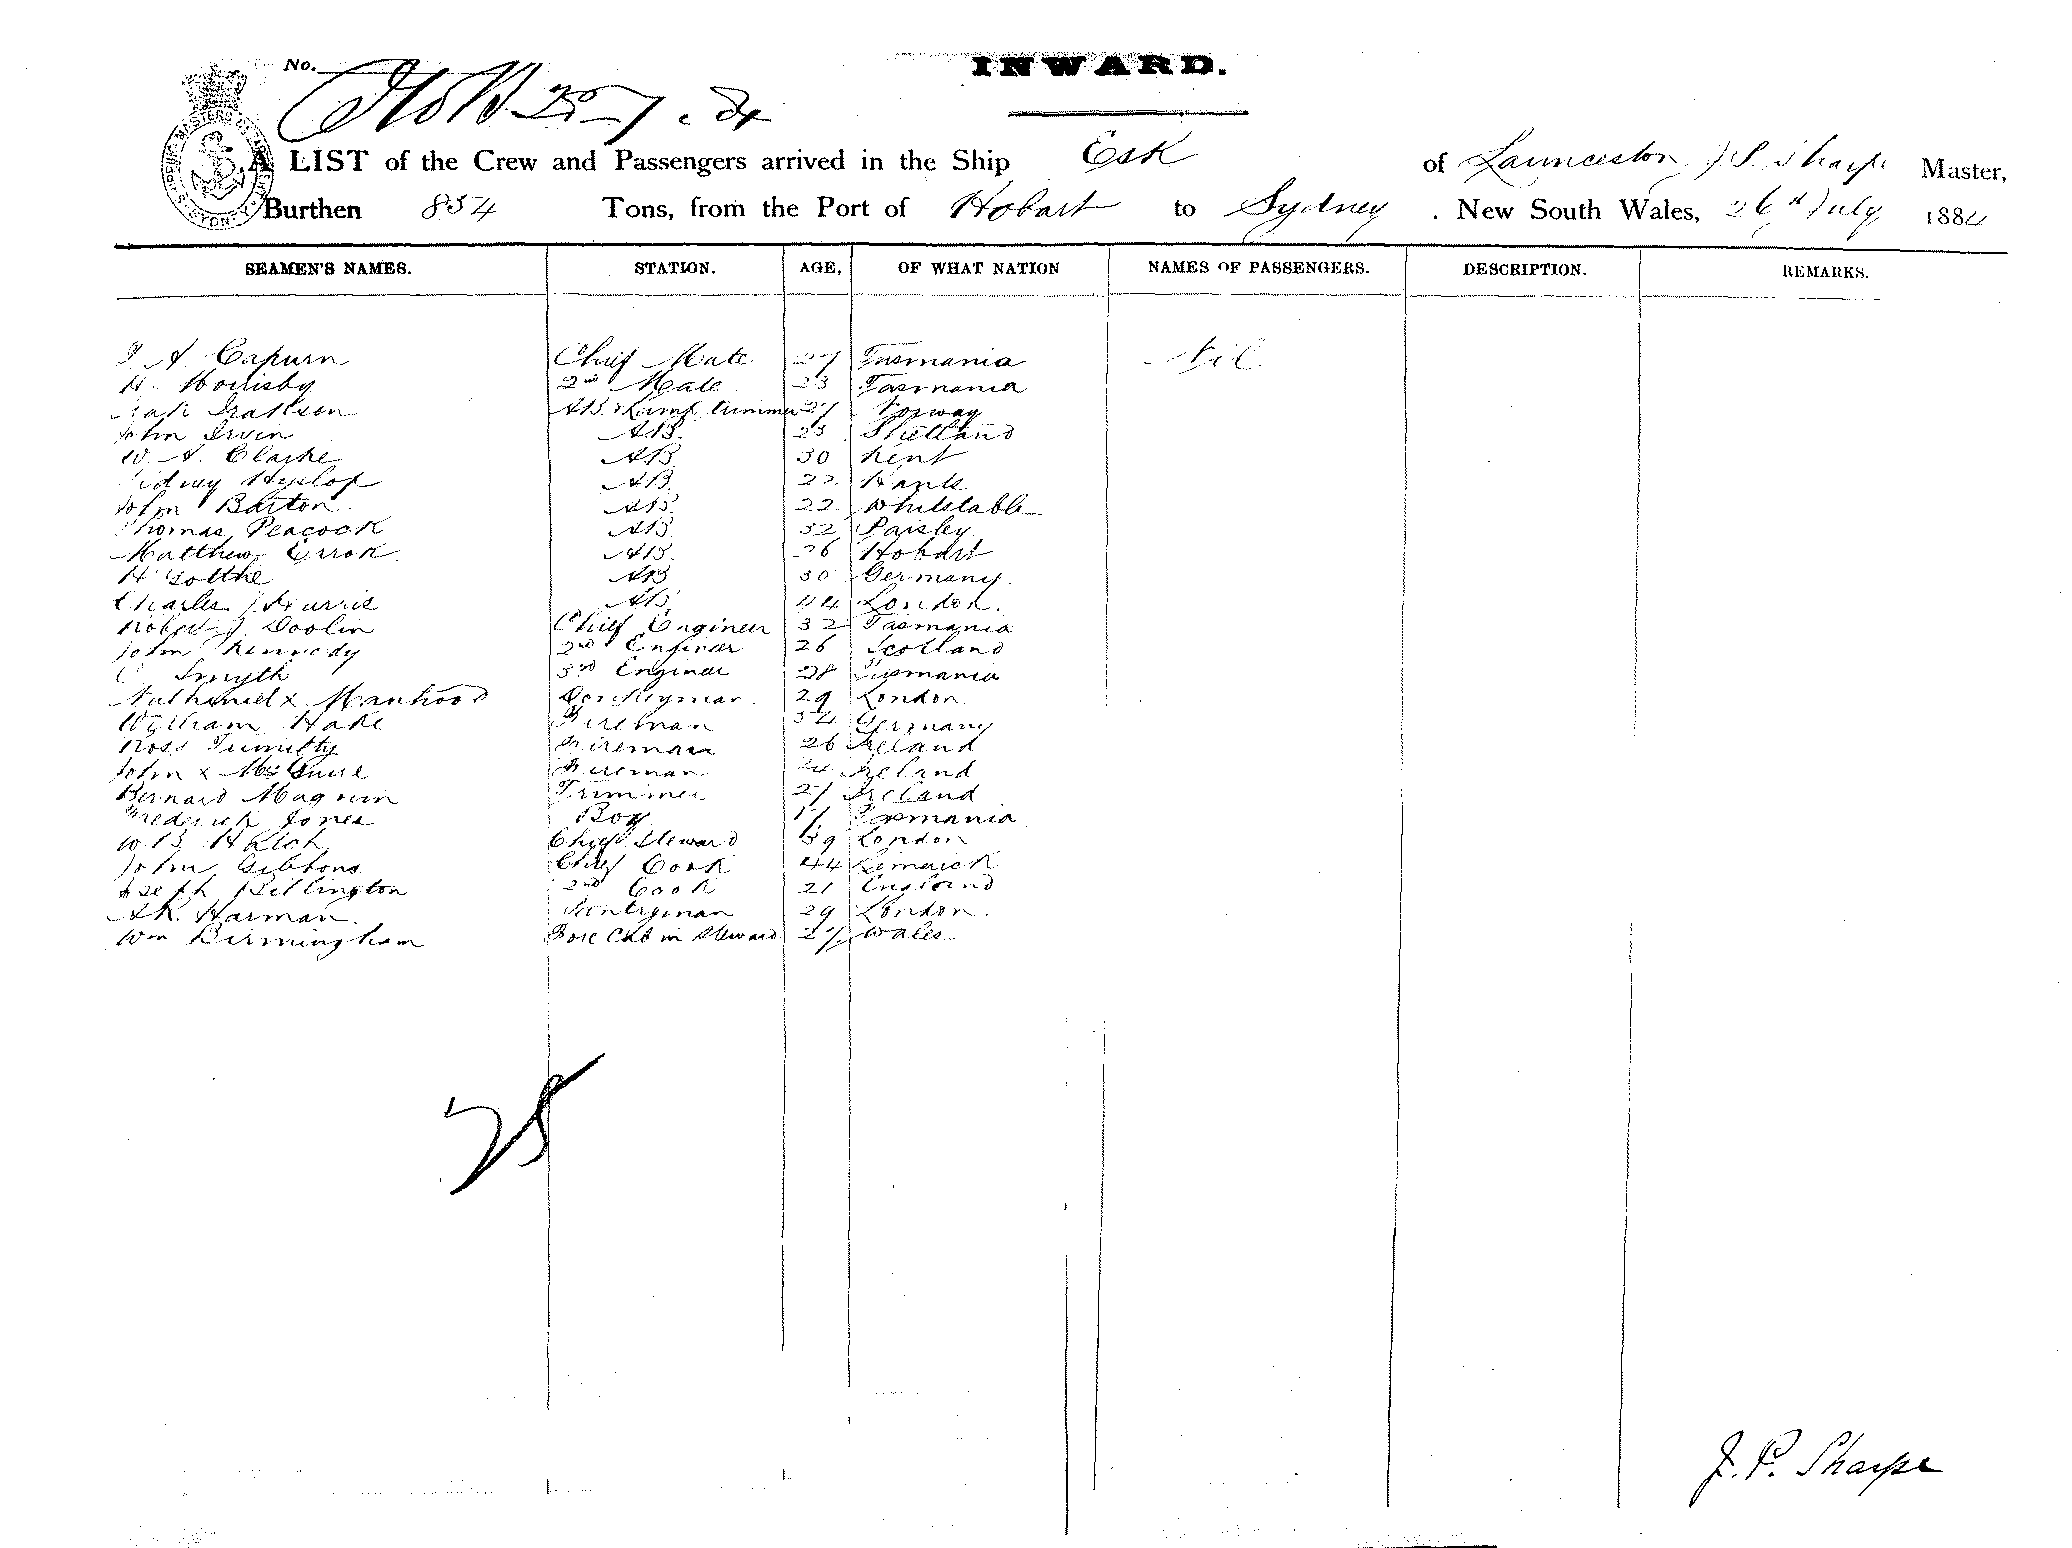 No.
INWARD.
A LIST of the Crew and Passengers arrived in the Ship Esk of Launceston, J. P. Sharpe Master,
Burthen 854 Tons, from the Port of Hobart to Sydney. New South Wales, 26th July 1884
SEAMEN'S NAMES. STATION. AGE, OF WHAT NATION NAMES OF PASSENGERS. DESCRIPTION. REMARKS.
A Capurn Chief Mate 27 Tasmania Nil
H. Hornsby 2nd Mate 23 Tasmania
Isak Isakson AB & Lamp trimmer 27 Norway
John Irvin AB 23 Shetland
W. A. Clarke AB 30 Kent
Sidney Hyslop AB 22 Hants
John Barton AB 22 Whitstable
Thomas Peacock AB 32 Paisley
Matthew Errok AB 26 Hobart
H AB 30 Germany.
Charles J Harris AB 44 London.
Robert J. Doolin Chief Engineer 32 Tasmania
John Kennedy 2nd Engineer 26 Scotland
C Smyth 3rd Engineer 28 Tasmania
Nathaniel x Manhood Donkeyman 29 London
William Hake Fireman 34 Germany
Ross Tumilty Fireman 26 Ireland
John x McGuire Fireman Ireland
Bernard Magnim Trimmer 27 Ireland
Frederick Jones Boy 17 Tasmania
W. B. Hatch Chief Steward 39 London
John Gibbons Chief Cook 44 Limerick
Joseph Billington 2nd Cook 21 England
A. K. Harman Pantryman 29 London.
Wm Birmingham Fore Cabin Steward 27 Wales
25
J. P. Sharpe